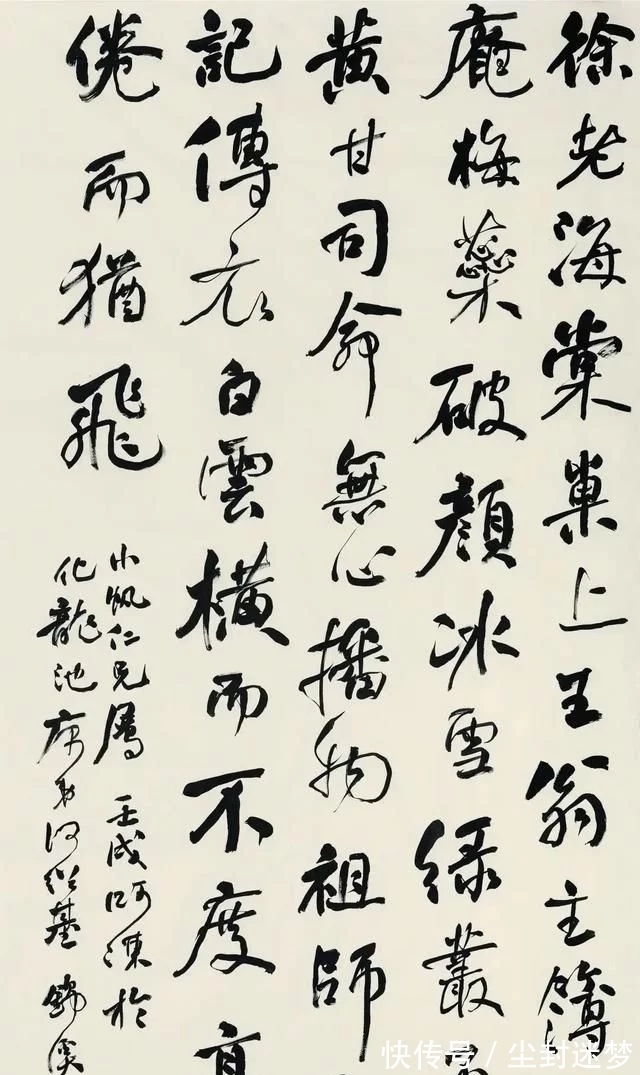 徐老海棠巢上王翁主簿
庵梅蘂破顏冰雪綠叢
黃甘司命無心播物祖師
記傳衣白雲橫而不度高
倦而猶飛
小帆仁兄屬 壬戌呵凍於
化龍池 弟何紹基
快传号 / 尘封迷梦